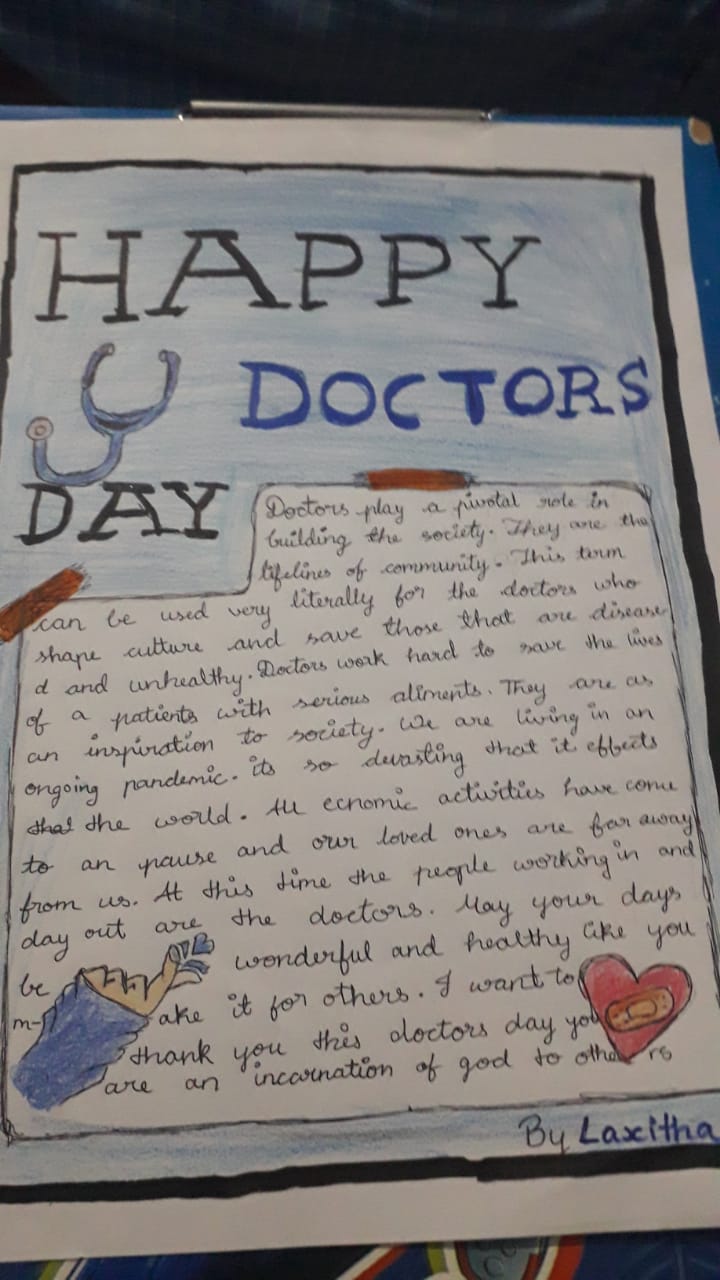 HAPPY
DOCTORS
DAY
Doctors play a pivotal role in
building the society. They are the
lifelines of community. This term
can be used very literally for the doctors who
shape culture and save those that are disease
d and unhealthy. Doctors work hard to save the lives
of a patients with serious aliments. They are as
an inspiration to society. We are living in an
ongoing pandemic. its so devasting that it effects
that the world. All ecnomic activities have come
to an pause and our loved ones are far away
from us. At this time the people working in and
day out are the doctors. May your days
be wonderful and healthy like you
m- ake it for others. I want to
thank you this doctors day you
are an incarnation of god to othe rs
By Laxitha